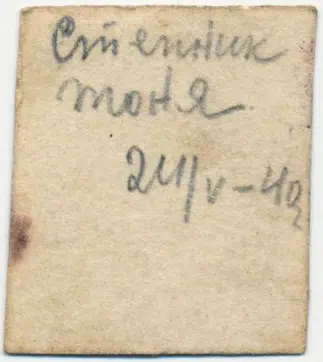 Степник
тоня
24/V-40г